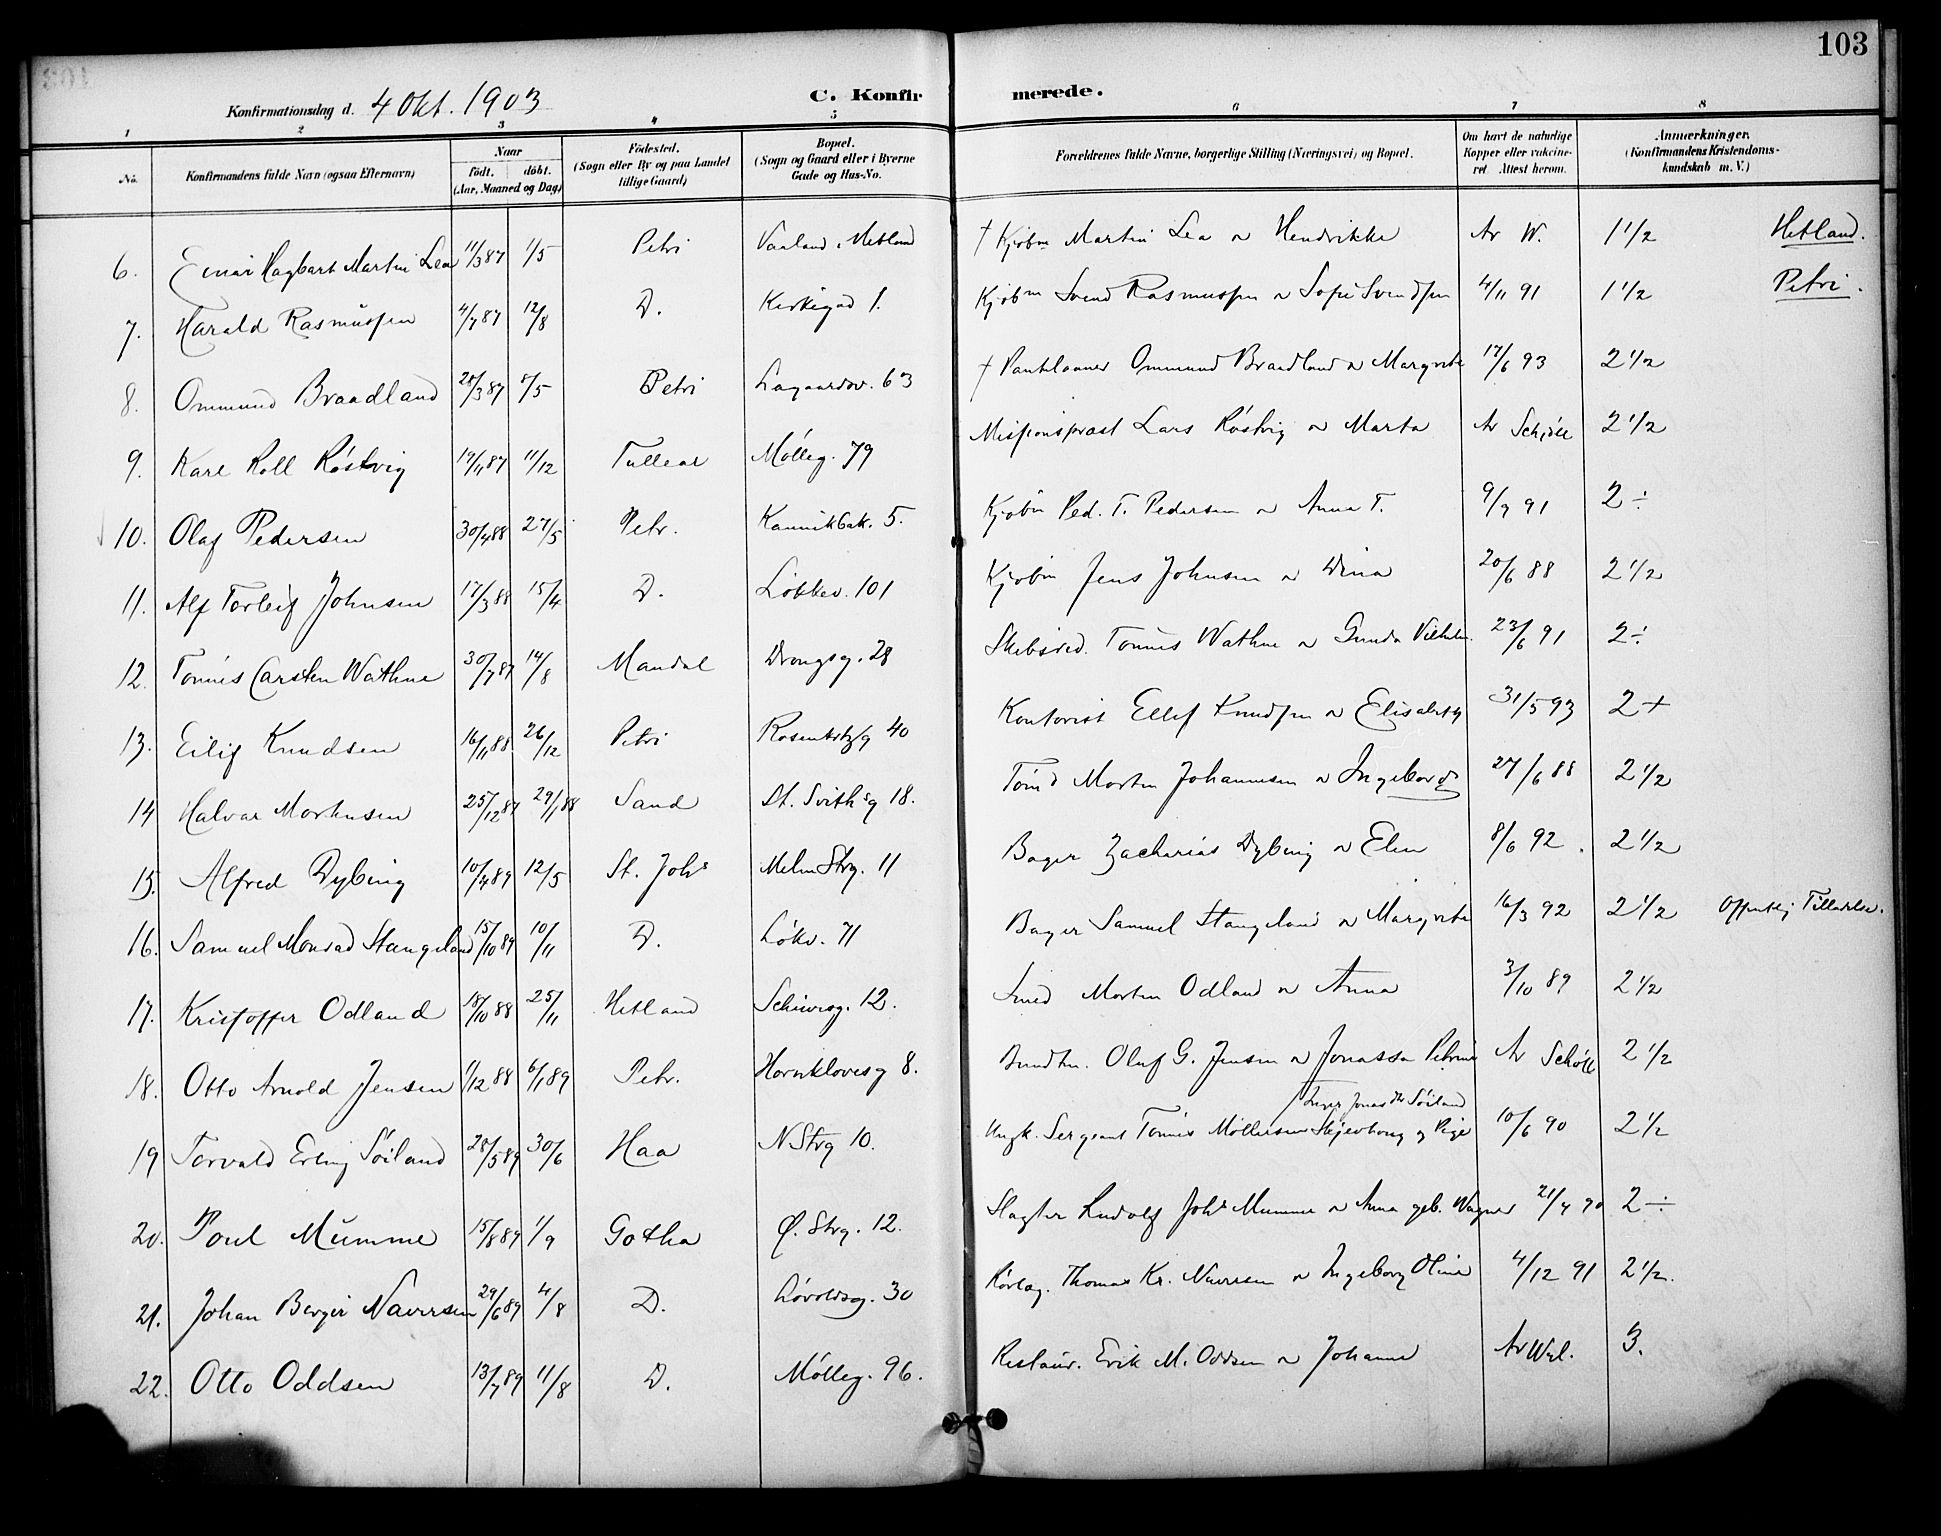 103
Konfirmationsdag d. 4 Okt. 1903 C. Konfirmerede.
1 2 3 4 5 6 7 8
No. Konfirmandens fulde Navn (ogsaa Efternavn) Naar födt. döbt. (Aar, Maaned og Dag) Födested. (Sogn eller By og paa Landet tillige Gaard) Bopæl. (Sogn og Gaard eller i Byerne Gade og Hus-No. Forældrenes fulde Navne, borgerlige Stilling (Næringsvei) og Bopæl. Om havt de naturlige Kopper eller vakcineret. Attest herom. Anmærkninger. (Konfirmandens Kristendomskundskab m. V.)
6. Einar Hagbart Martin Lea 11/3 87 1/5 Petri Vaaland, Hetland † Kjøbm Martin Lea o Hendrikke Av W. 1 1/2 Hetland.
7. Harald Rasmussen 4/7 87 12/8 D. Kirkegad 1. Kjøbm Svend Rasmussen o Sofie Svendsen 4/11 91 1 1/2 Petri.
8. Ommund Braadland 28/3 87 8/5 Petri Lagaardsv. 63 † Pantelaaner Ommund Braadland o Margrete 17/6 93 2 1/2
9. Kare Roll Røstvig 19/11 87 11/12 Tullear Mølleg. 79 Missionspræst Lars Røstvig o Marta Av Schiøtt 2 1/2
10. Olaf Pedersen 30/4 88 27/5 Petr. Kannikbak. 5. Kjøbm Ped. T. Pedersen o Anna T. 9/9 91 2 ÷
11. Alf Torleif Johnsen 17/3 88 15/4 D. Løkkev. 101 Kjøbm Jens Johnsen o Dina 20/6 88 2 1/2
12. Tønnes Carsten Wathne 30/7 87 14/8 Mandal Drongsg. 28 Skibsred. Tønnes Wathne o Gunda Vilhelm. 23/6 91 2 ÷
13. Eilif Knudsen 16/11 88 26/12 Petri Rosenkrtzg 40 Kontorist Ellef Knudsen o Elisabeth 31/5 93 2 +
14 Halvar Mortensen 25/12 87 29/1 88 Sand St. Svithsg 18. Tømd Morten Johannesen o Ingeborg 27/6 88 2 1/2
15. Alfred Dybing 10/4 89 12/5 St. Johs Melm Strg. 11 Bager Zacharias Dybing o Elen 8/6 92. 2 1/2
16. Samuel Monrad Stangeland 15/10 89 10/11 D. Løkv. 71 Bager Samuel Stangeland o Margrete 16/3 92 2 1/2 Offentlig Tilladelse.
17. Kristoffer Odland 18/10 88 25/11 Hetland Schiversg. 12. Smed Morten Odland o Anna 3/10 89 2 1/2
18. Otto Arnold Jensen 1/12 88 6/1 89 Petr. Hornklovesg 8. Bundtm. Oluf G. Jensen o Jonassa Petrine Av Schøtt 2 1/2
Inger Jonasdtr Søiland
19 Torvald Erling Søiland 28/5 89 30/6 Haa N Strg 10. Ungk. Sergeant Tønnes Møllersen Skjevhong og Pige 10/6 90 2 1/2
20. Poul Mumme 15/8 89 1/9 Gotha Ø. Strg. 12. Slagter Rudolf Johs Mumme o Anna geb. Wagner 21/7 90 2 ÷
21. Johan Berger Naversen 29/6 89 4/8 D. Løvoldsg. 30 Rørlæg. Thomas Kr. Naversen o Ingeborg Oline 4/12 91 2 1/2.
22. Otto Oddsen 13/7 89 11/8 D. Mølleg. 96. Restaur. Erik M. Oddsen o Johanne Av Wyl. 3.